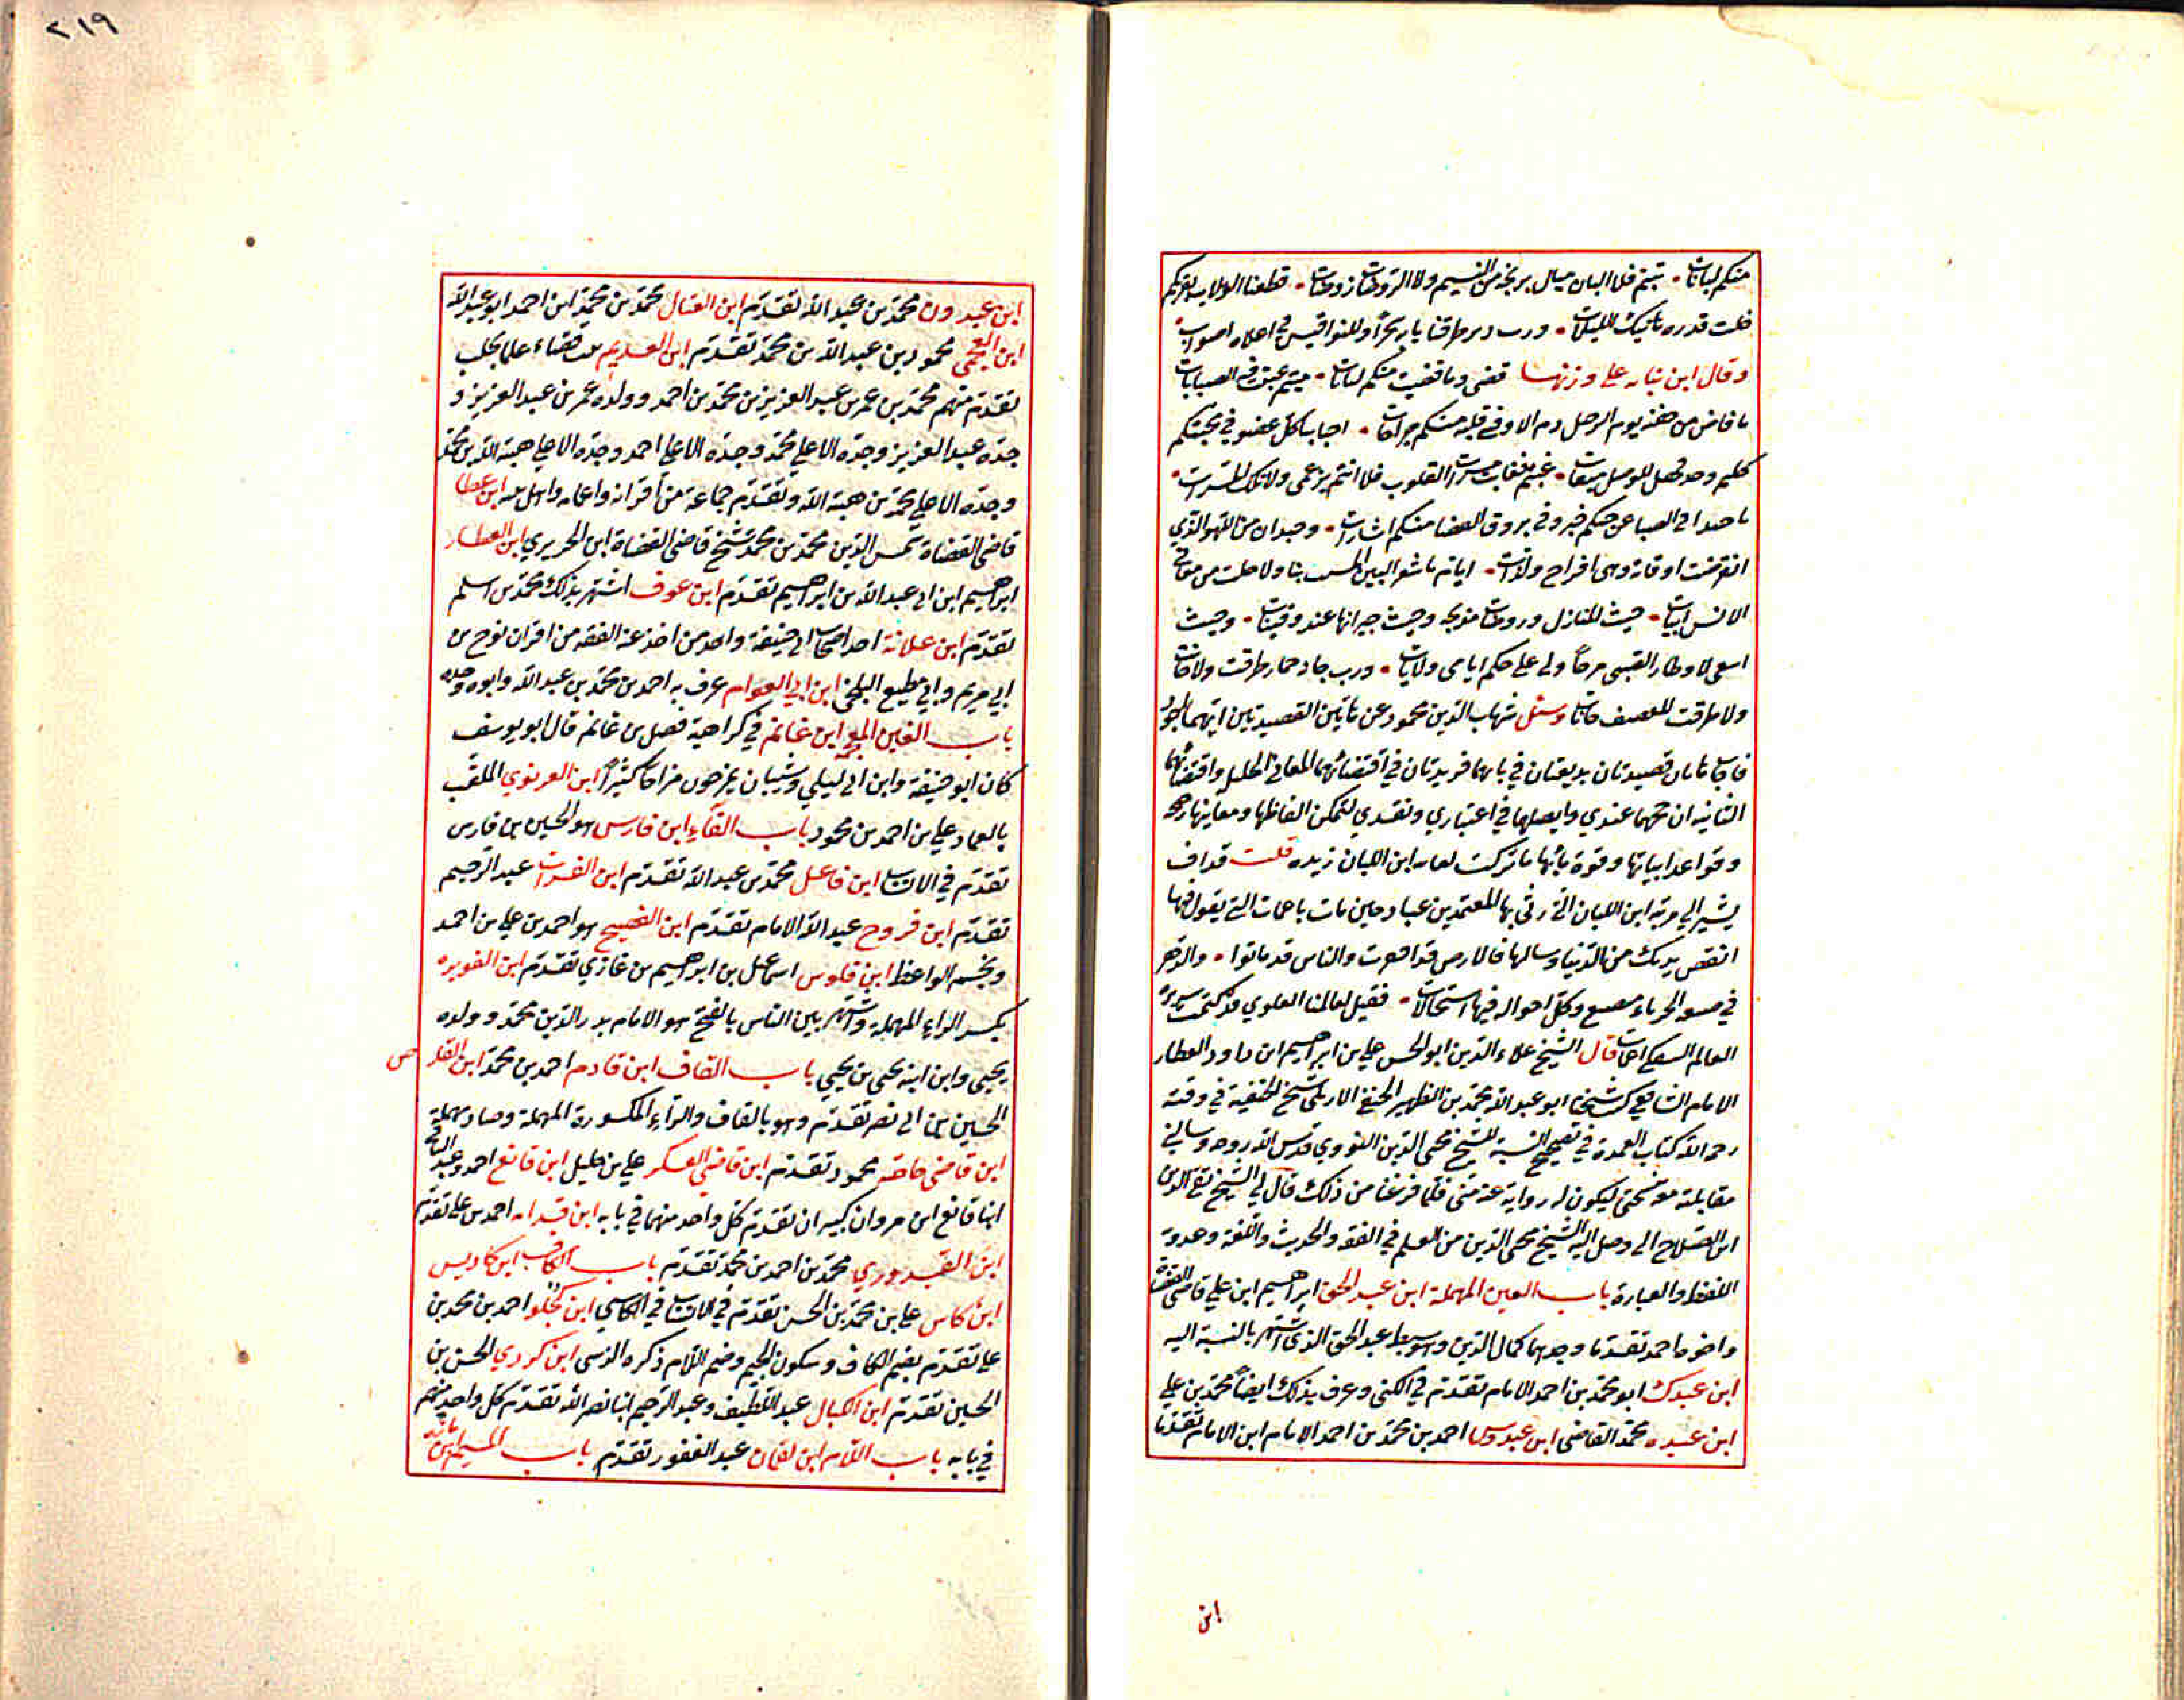 منكم لبانات . تيتم فلا البان ميال بريحه من النسيم ولا الروضات روضات . قطعنا
خلت قدره تلك الليلات . ورب دير طرقنا بابه سحرا وللنواقيس في اعلاه اصوات .
وقال ابن نباته على وزنها قضى وما قضيت منكم لبانات . متيم عبثت فيه الصبابات
ما فاض من جفنه يوم الرحيل دم الا وفي قلبه منكم جراحات . احبابنا كل عضو في محبتكم
كليم وجد فهل للوصل ميقات . غبتم فغابت مسرات القلوب فلا انتم بزعمي ولا تلك المسرات .
يا حبذا في الصبا عن حيكم خبر وفي بروق الغضا منكم اشارات . وحبذا زمن اللهو الذي
انقرضت اوقاته وهي افراح ولذات . ايام ما شعر البين المشت بنا ولا خلت من مغاني
الانس ابيات . حيث المنازل وروضات مدبجه وحيث جيرانها عند وقينات . وحيث
اسعى لاوطار الصبى مرحا ولي على حكم ايامي ولايات . ورب حانة خمار طرقت ولا حانت
ولا طرقت للقصف حانات وسئل شهاب الدين محمود عن هاتين القصيدتين ايتهما اجود
فاجاب بان قصيدتان بديعتان في بابهما فريدتان في اقتضائهما المعاني الجليل واقتضائهما
الثانيه ارجحهما عندي وافضلهما في اعتباري ونقدي لتمكن الفاظها ومعانيها
وقواعد ابياتها وقوة بنائها ما تركت لغايه ابن اللبان زيده قلت قد اف
يشير الي مرثيه ابن اللبان التي رثى بها المعتمد بن عباد حين مات باغمات التي يقول فيها
انفض يديك من الدنيا وساكنها فالارض قد اقفرت والناس قد ماتوا . والدهر
في صبغة الحرباء منغمس وكل احواله فيها استحالات . فقل لعالمنا العلوي قد كتمت سريرة
العالم السفلي اغمات قال الشيخ علاء الدين ابو الحسن علي بن ابراهيم ابن داود العطار
الامام الشافعي كتب شيخنا ابو عبد الله محمد بن الظهير الحنفي الاربلي شيخ الحنفية في وقته
رحمه الله كتاب العمدة في تصحيح التنبيه للشيخ محي الدين النووي قدس الله روحه وسالني
مقابلته معه بنسختي ليكون له رواية عنه مني فلما فرغنا من ذلك قال لي الشيخ تقي الدين
ابن الصلاح الى وصل اليه الشيخ محي الدين من العلم في الفقه والحديث واللغة وعذوبة
اللفظ والعبارة باب العين المهملة ابن عبد الحق ابراهيم ابن علي قاضي القضاة
واخوه احمد تقدما وجدهما كمال الدين وهو سبط عبد الحق الذي اشتهر بالنسبة اليه
ابن عبدك ابو محمد بن احمد الامام تقدم في الكنى وعرف بذلك ايضا محمد بن علي
ابن عبده محمد القاضي ابن عبدوس احمد بن محمد بن احمد الامام ابن الامام تقدما
ابن
٢١٩
ابن عبدون محمد بن عبد الله تقدم ابن العتال محمد بن محمد ابن احمد ابو عبد الله
ابن العجمي محمود بن عبد الله بن محمد تقدم ابن العديم بيت قضاء علما بحلب
تقدم منهم محمد بن عمر بن عبد العزيز بن محمد بن احمد وولده عمر بن عبد العزيز و
جده عبد العزيز وجده الاعلى محمد وجده الاعلى احمد وجده الاعلى هبة الله بن محمد
وجده الاعلى محمد بن هبة الله وتقدم جماعة من اقرانه واعمامه واهل بيته ابن عطا
قاضي القضاة شمس الدين محمد بن محمد شيخ قاضي القضاة ابن الحريري ابن العطار
ابراهيم ابن ابي عبد الله بن ابراهيم تقدم ابن عوف اشتهر بذلك محمد بن اسلم
تقدم ابن علاثة احد اصحاب ابي حنيفة واحد من اخذ عنه الفقه من اقران نوح بن
ابي مريم وابي مطيع البلخي ابن ابي العوام عرف به احمد بن محمد بن عبد الله وابوه وجده
باب الغين المعجمه ابن غانم في كراهية فضل بن غانم قال ابو يوسف
كان ابو حنيفة وابن ابي ليلي وشيبان يمزحون مزاحا كثيرا ابن الغزنوي الملقب
بالعماد علي بن احمد بن محمود باب الفاء ابن فارس هو الحسين بن فارس
تقدم في الانساب ابن فاعل محمد بن عبد الله تقدم ابن الفرات عبد الرحيم
تقدم ابن فروح عبد الله الامام تقدم ابن الفصيح هو احمد بن علي بن احمد
ونجم الواعظ ابن فلوس اسمعيل بن ابراهيم بن غازي تقدم ابن الفويره
بكسر الراء المهملة واشتهر بين الناس بالفتح هو الامام بدر الدين محمد وولده
يحيي وابن ابنه يحيي بن يحيي باب القاف ابن قادم احمد بن محمد ابن القلا ص
الحسين بن ابي نصر تقدم وهو بالقاف والراء المكسورة المهملة وصاد مهملة
ابن قاضي حاحه محمود تقدم ابن قاضي العسكر علي بن خليل ابن قانع احمد وعبد الباقي
ابنا قانع ابن مروان كبيران تقدم كل واحد منهما في بابه ابن قدامه احمد بن علي تقدم
ابن القدوري محمد بن احمد بن محمد تقدم باب الكاف ابن كاديس
ابن كاس علي بن محمد بن الحسن تقدم في الانساب في الكاسي ابن كجلو احمد بن محمد بن
علي تقدم بضم الكاف وسكون الجيم وضم اللام ذكره الذهبي ابن كردي الحسن بن
الحسين تقدم ابن الكيال عبد اللطيف وعبد الرحيم ابنا نصر الله تقدم كل واحد منهم
في بابه باب اللام ابن لقمان عبد الغفور تقدم باب الميم ابن